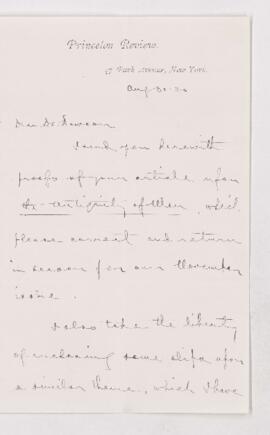 Princeton Review.
37 Park Avenue, New York.
Aug 30. 80
Dear Dr Dawson
I send you herewith
proofs of your article upon
the Antiquity of Man, which
please correct and return
in season for our November
issue.
I also take the liberty
of enclosing some slips upon
a similar theme, which I have